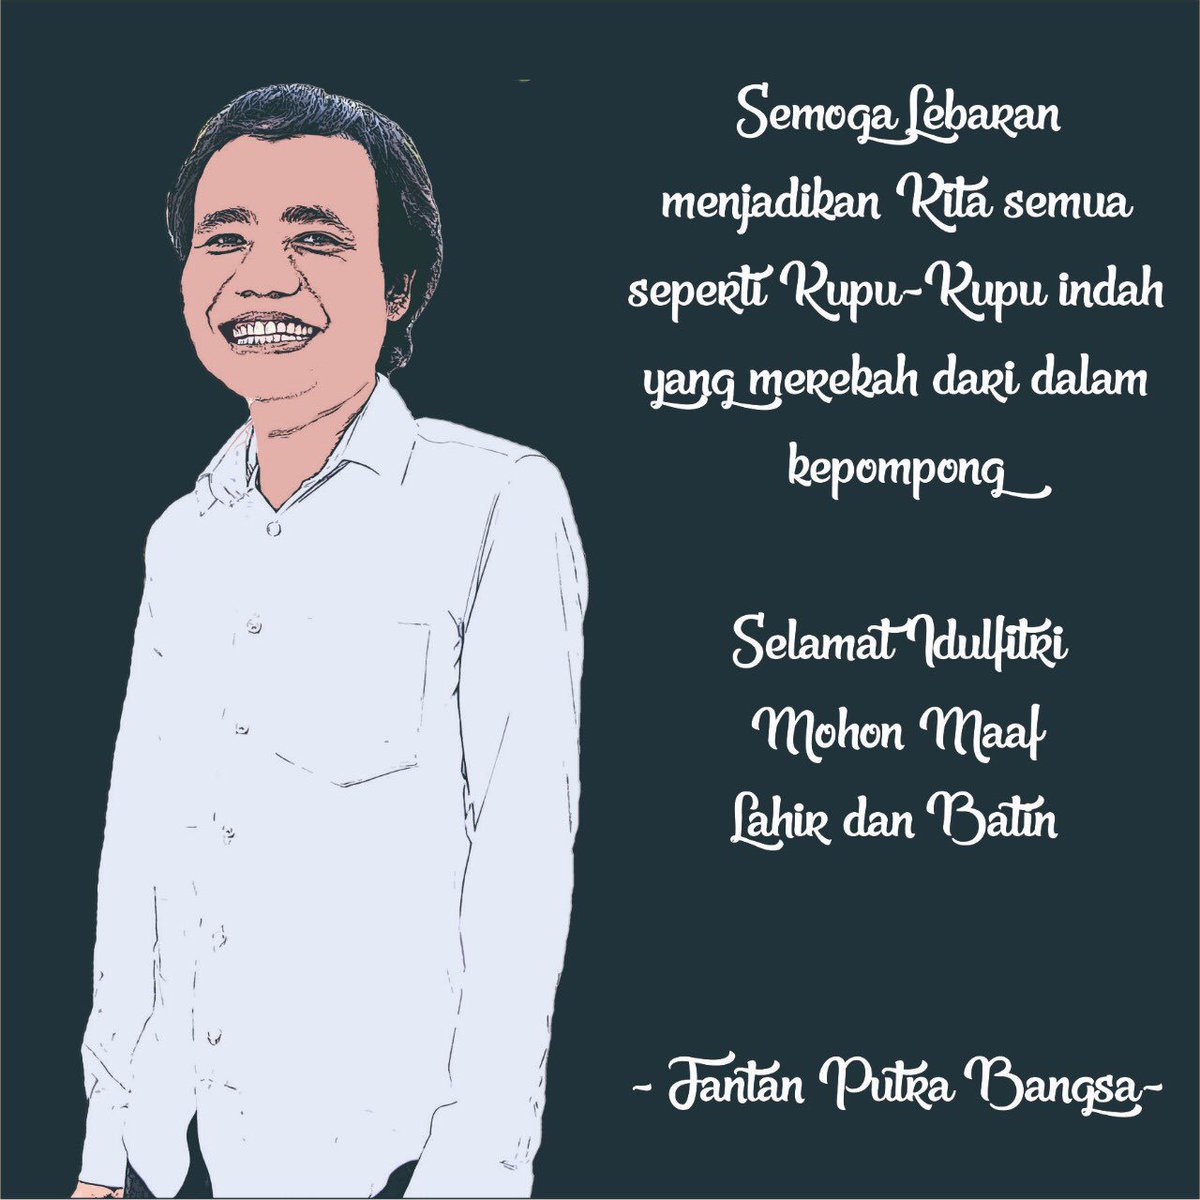 Semoga Lebaran
menjadikan Kita semua
seperti Kupu-Kupu indah
yang merekah dari dalam
kepompong
Selamat Idulfitri
Mohon Maaf
Lahir dan Batin
- Jantan Putra Bangsa-